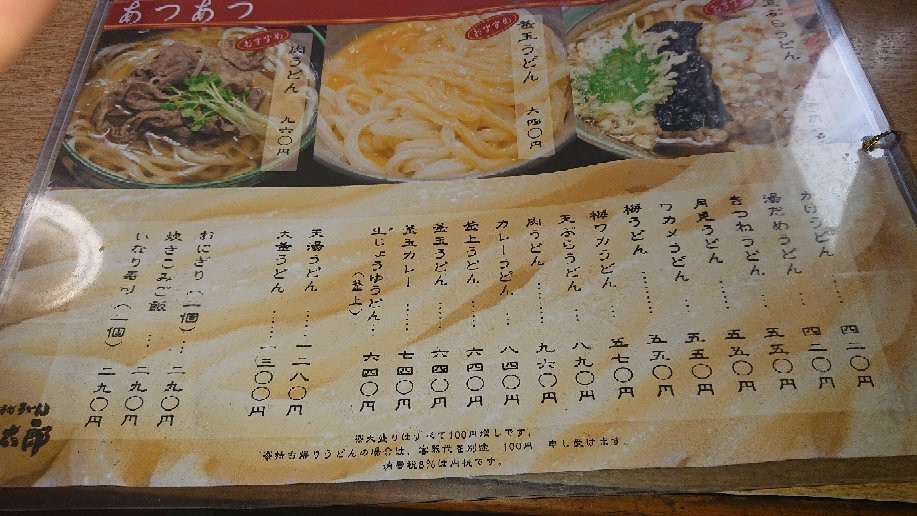 あつあつ
おすすめ
肉うどん
九六〇円
おすすめ
釜玉うどん
六四〇円
かけうどん 四二〇円
湯だめうどん… 四二〇円
きつねうどん… 五五〇円
月見うどん…… 五五〇円
ワカメうどん… 五五〇円
梅うどん……… 五五〇円
梅ワカメうどん 五七〇円
天ぷらうどん… 八九〇円
肉うどん……… 九六〇円
カレーうどん… 八四〇円
釜上うどん…… 六四〇円
釜玉うどん…… 六四〇円
釜玉カレー…… 七四〇円
生じょうゆうどん… 六四〇円
(釜上)
天湯うどん…… 一二八〇円
大釜うどん…… 一三〇〇円
おにぎり(二個)… 二九〇円
炊きこみご飯… 二九〇円
いなり寿司(二個) 二九〇円
太郎
※大盛りはすべて100円増しです。
※持ち帰りうどんの場合は、容器代金別途 100円 申し受けます。
消費税8%は内税です。